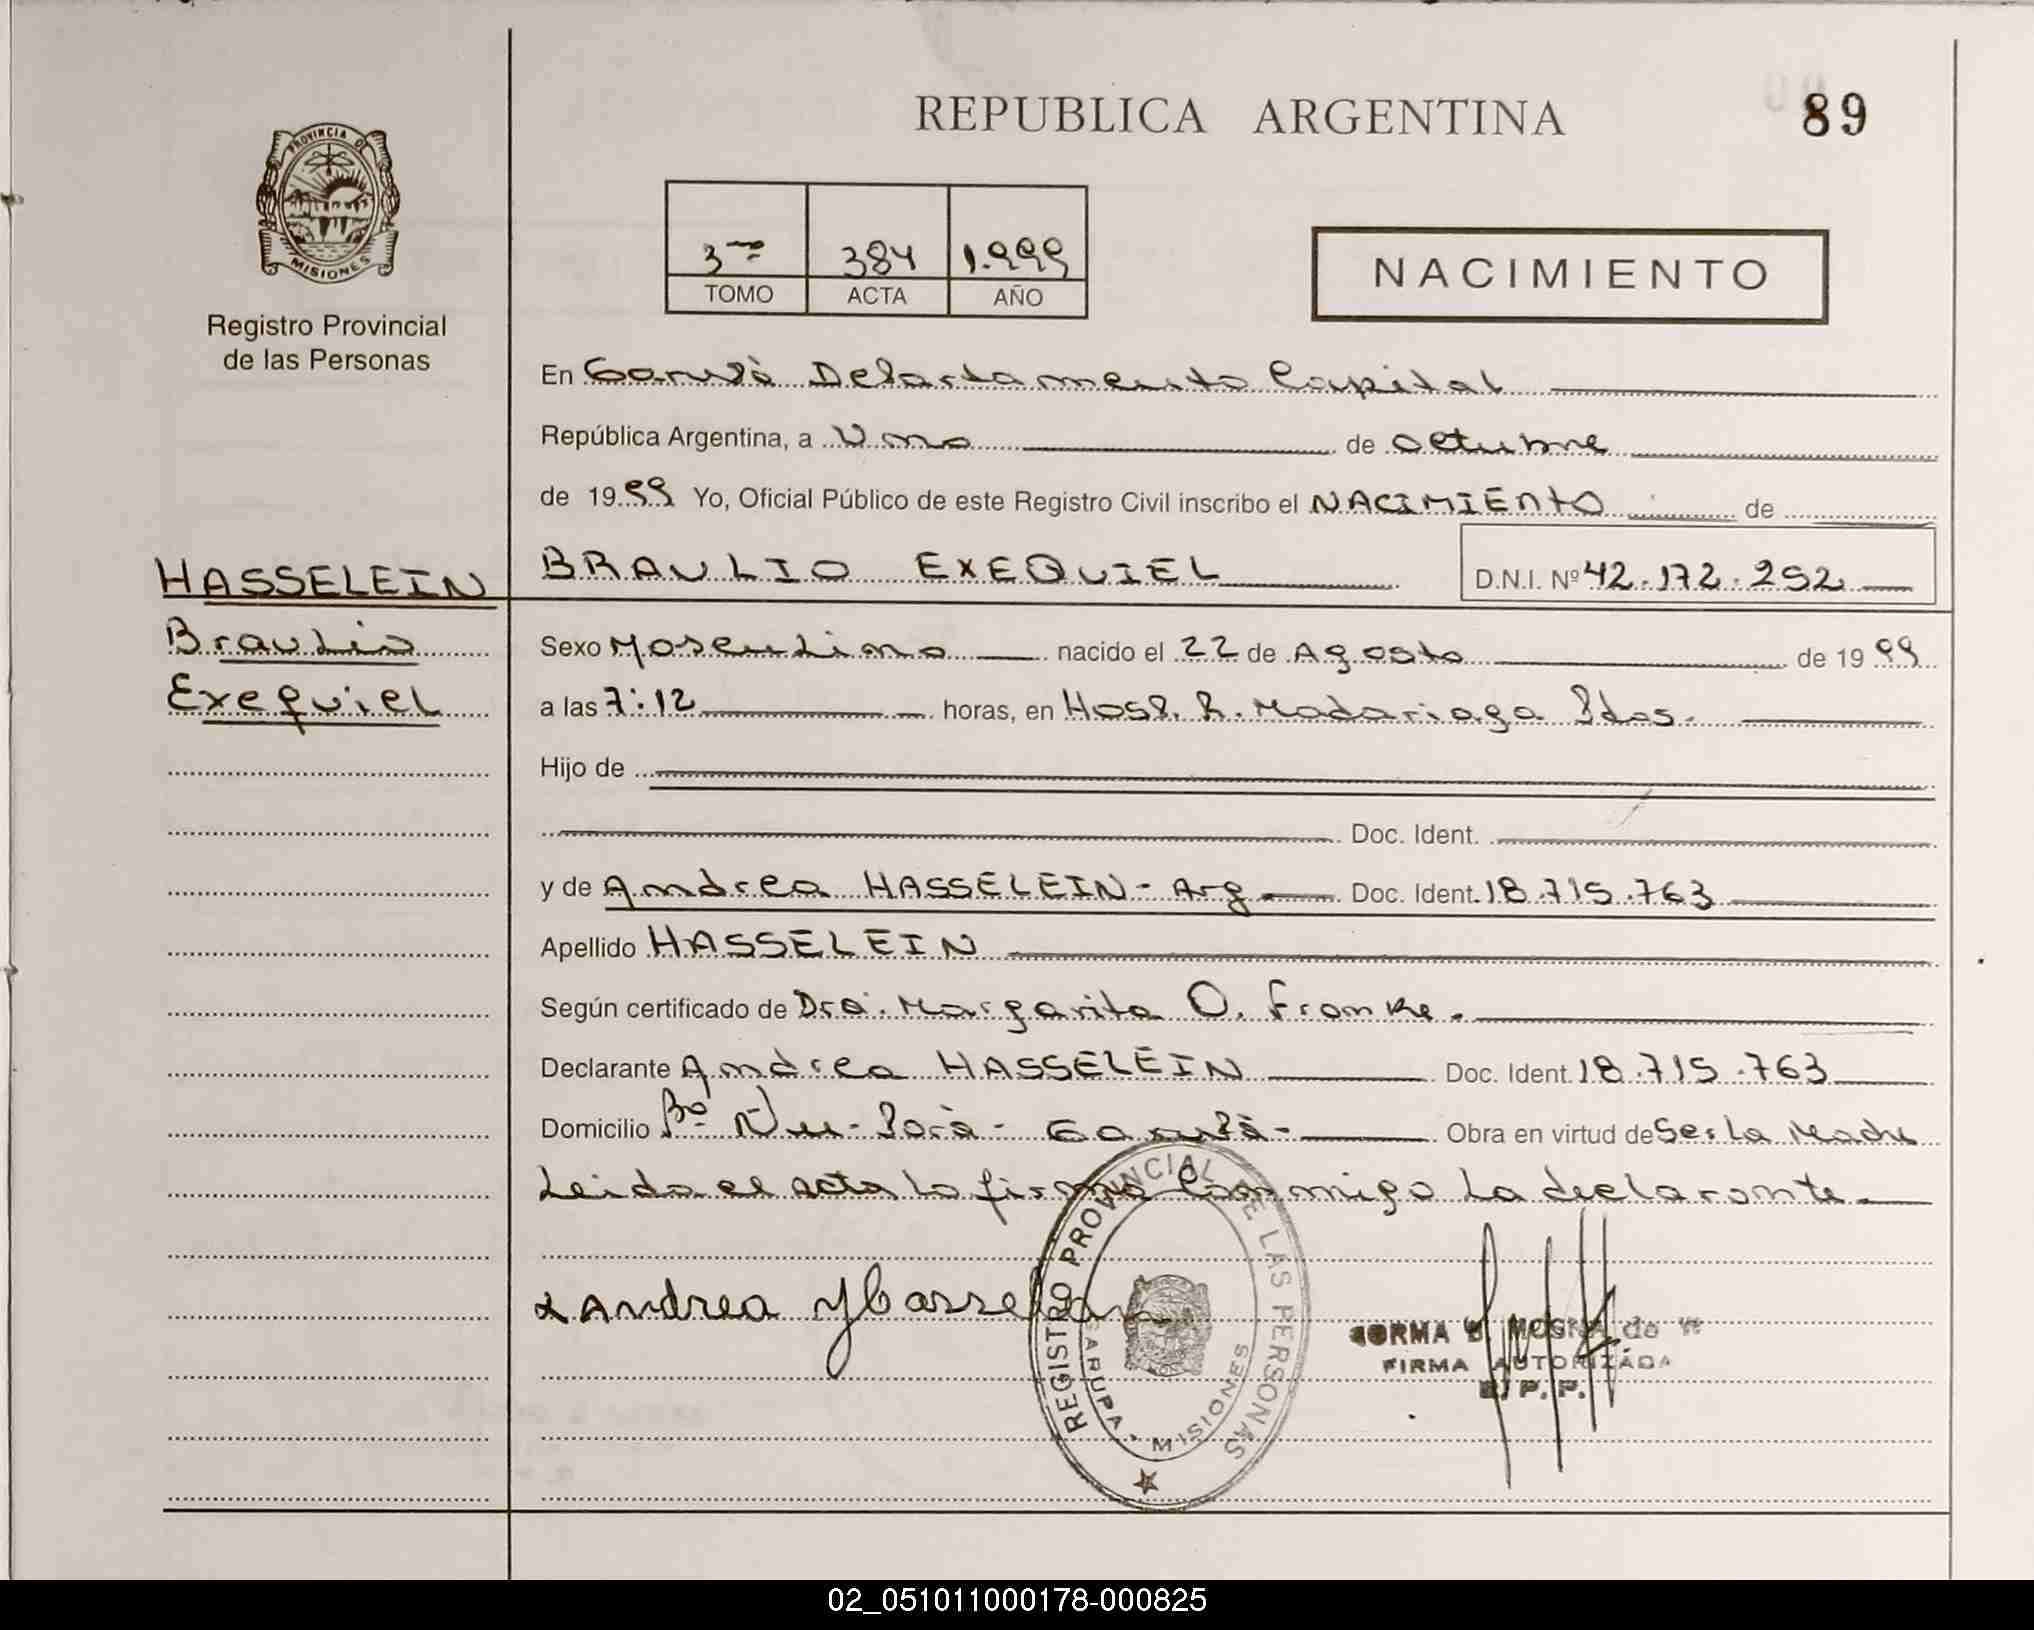 REPUBLICA ARGENTINA
89
PROVINCIA DE
MISIONES
Registro Provincial
de las Personas
3ro 384 1.999
TOMO ACTA AÑO
NACIMIENTO
En Garupà Departamento Capital
República Argentina, a Uno de octubre
de 1999 Yo, Oficial Público de este Registro Civil inscribo el NACIMIENTO de
HASSELEIN BRAULIO EXEQUIEL D.N.I. Nº 42.172.252
Braulio
Exequiel
Sexo Masculino nacido el 22 de Agosto de 1999
a las 7:12 horas, en Hosp. R. Madariaga Pdas.
Hijo de
Doc. Ident.
y de Andrea HASSELEIN - Arg Doc. Ident. 18.715.763
Apellido HASSELEIN
Según certificado de Dra. Margarita O. Franke.
Declarante Andrea HASSELEIN Doc. Ident. 18.715.763
Domicilio Bº Ñu-Porà - Garupà - Obra en virtud de Ser la Madre
Leida el acta la firma conmigo la declarante.
Andrea Hasselein
REGISTRO PROVINCIAL DE LAS PERSONAS
GARUPA - MISIONES
FIRMA AUTORIZADA
R. P. P.
02_051011000178-000825